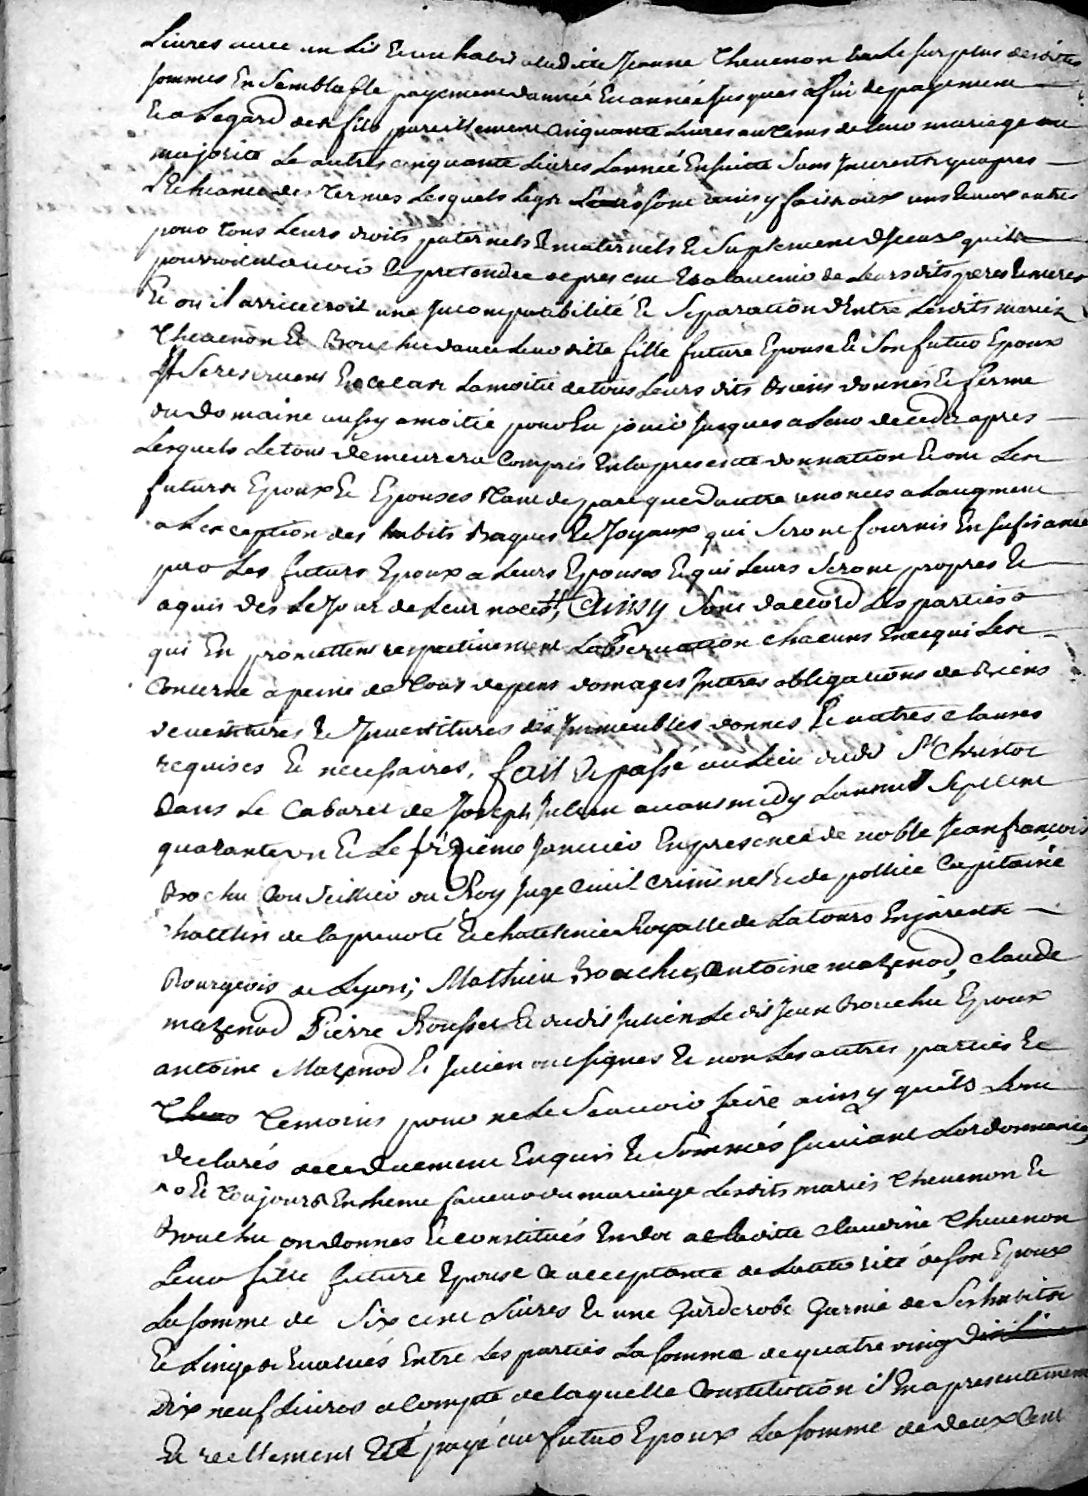 Livres avec un Lit et un habit a laditte Jeanne Thevenon et Le surplus desdittes
sommes En Semblable payement dannée En année jusques a fin de payement
Et a Legard des fils pareillement cinquante Livres au tems de leur mariage ou
majorité Le autres cinquante Livres Lannée Ensuitte Sans Interests quapres
Lecheance des termes Lesquels Legs Leurs sont ainsy faits aux uns et aux autres
pour tous Leurs droits paternels & maternels & Suplement diceux quils
pourroient avoir & pretendre de present & a lavenir de Leursdits peres & meres
Et ou il arriveroit une Incompatibilité & Separation dEntre Lesdits mariés
Thevenon & Brouchu davec Leur ditte fille future Epouse & Son futur Epoux
Ils Se reservent En ce cas La moitié de tous Leurs dits Biens donnés & ferme
du domaine aussy a moitié pour En jouir jusques a Leur decedz apres
Lesquels Le tout demeurera compris En la presente donnation & ont Les
futurs Epoux & Epouses tant de part que dautre renoncés a Laugment
a Lexception des habits Bagues & Joyaux qui Seront fournis En sufisance
par Les futurs Epoux a Leurs Epouses & qui Leurs Seront propres &
aquis des Le Jour de Leur noces, Ainsy Sont daccord Les parties
qui En promettent respectivement Lobservation chacuns En ce qui Les
Concerne a peine de tous depens domages Interes obligations de Biens
devestitures & Investitures des Immeubles donnés & autres clauses
requises & necessaires. fait & passé au Lieu dudt St Christot
Dans Le Cabaret de Joseph Julien avant midy Lan mil Sept cent
quarante un & Le sizieme Janvier En presence de noble Jean françois
Brochu Conseillier du Roy Juge Civil Criminel & de pollice Capitaine
chattlin de la prevoté & chatelnie Royalle de Latours En jarests
Bourgeois de Lyon; Mathieu Bouchu, Antoine mazenod, Claude
mazenod Pierre Rousset & dudit Julien Ledit Jean Brouchu Epoux
antoine Mazenod & Julien ont signés & non Les autres parties &
temoins pour ne Le Scavoir faire ainsy quils Lont
declarés de ce duement Enquis & Sommés suivant Lordonnance
& toujours En sheme faveur du mariage Lesdits mariés Thevenon &
Brouchu on donnés & constitués En dot a laditte Claudine Thevenon
Leur fille future Epouse ce acceptante de Lautorité de son Epoux
La somme de Six cent Livres & une Garderobe Garnie de Ses habits
& Linges Evalués Entre Les parties La somme de quatre ving
Dix neuf Livres a compte de laquelle Constitution il En a presentement
& reellement Eté payé au futur Epoux La somme de deux Cent